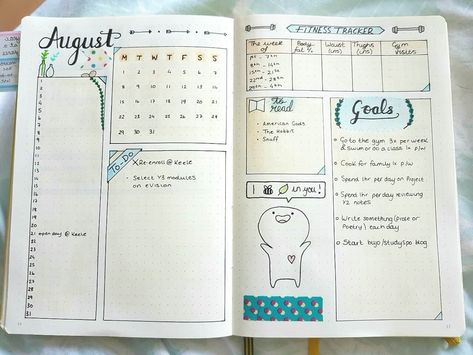 August
M T W T F S S
1 2 3 4 5 6 7
8 9 10 11 12 13 14
15 16 17 18 19 20 21
22 23 24 25 26 27 28
29 30 31
1
2
3
4
5
6
7
8
9
10
11
12
13
14
15
16
17
18
19
20
21 open day @ Keele
22
23
24
25
26
27
28
29
30
31
To-Do
X Re-enroll @ Keele
• Select Y3 modules
on eVision
FITNESS TRACKER
The week of
Body fat %
Waist (cms)
Thighs (cms)
Gym visits
1st - 7th
8th - 14th
15th - 21st
22nd - 28th
29th - 4th
to read
• American Gods
• The Hobbit
• Snuff
I in you!
Goals
Go to the gym 3x per week
& swim or do a class 1x p/w
Cook for family 1x p/w
Spend 1hr per day on Project
Spend 1hr per day reviewing
Y2 notes
Write something (Prose or
Poetry) each day
Start bujo/studyspo blog